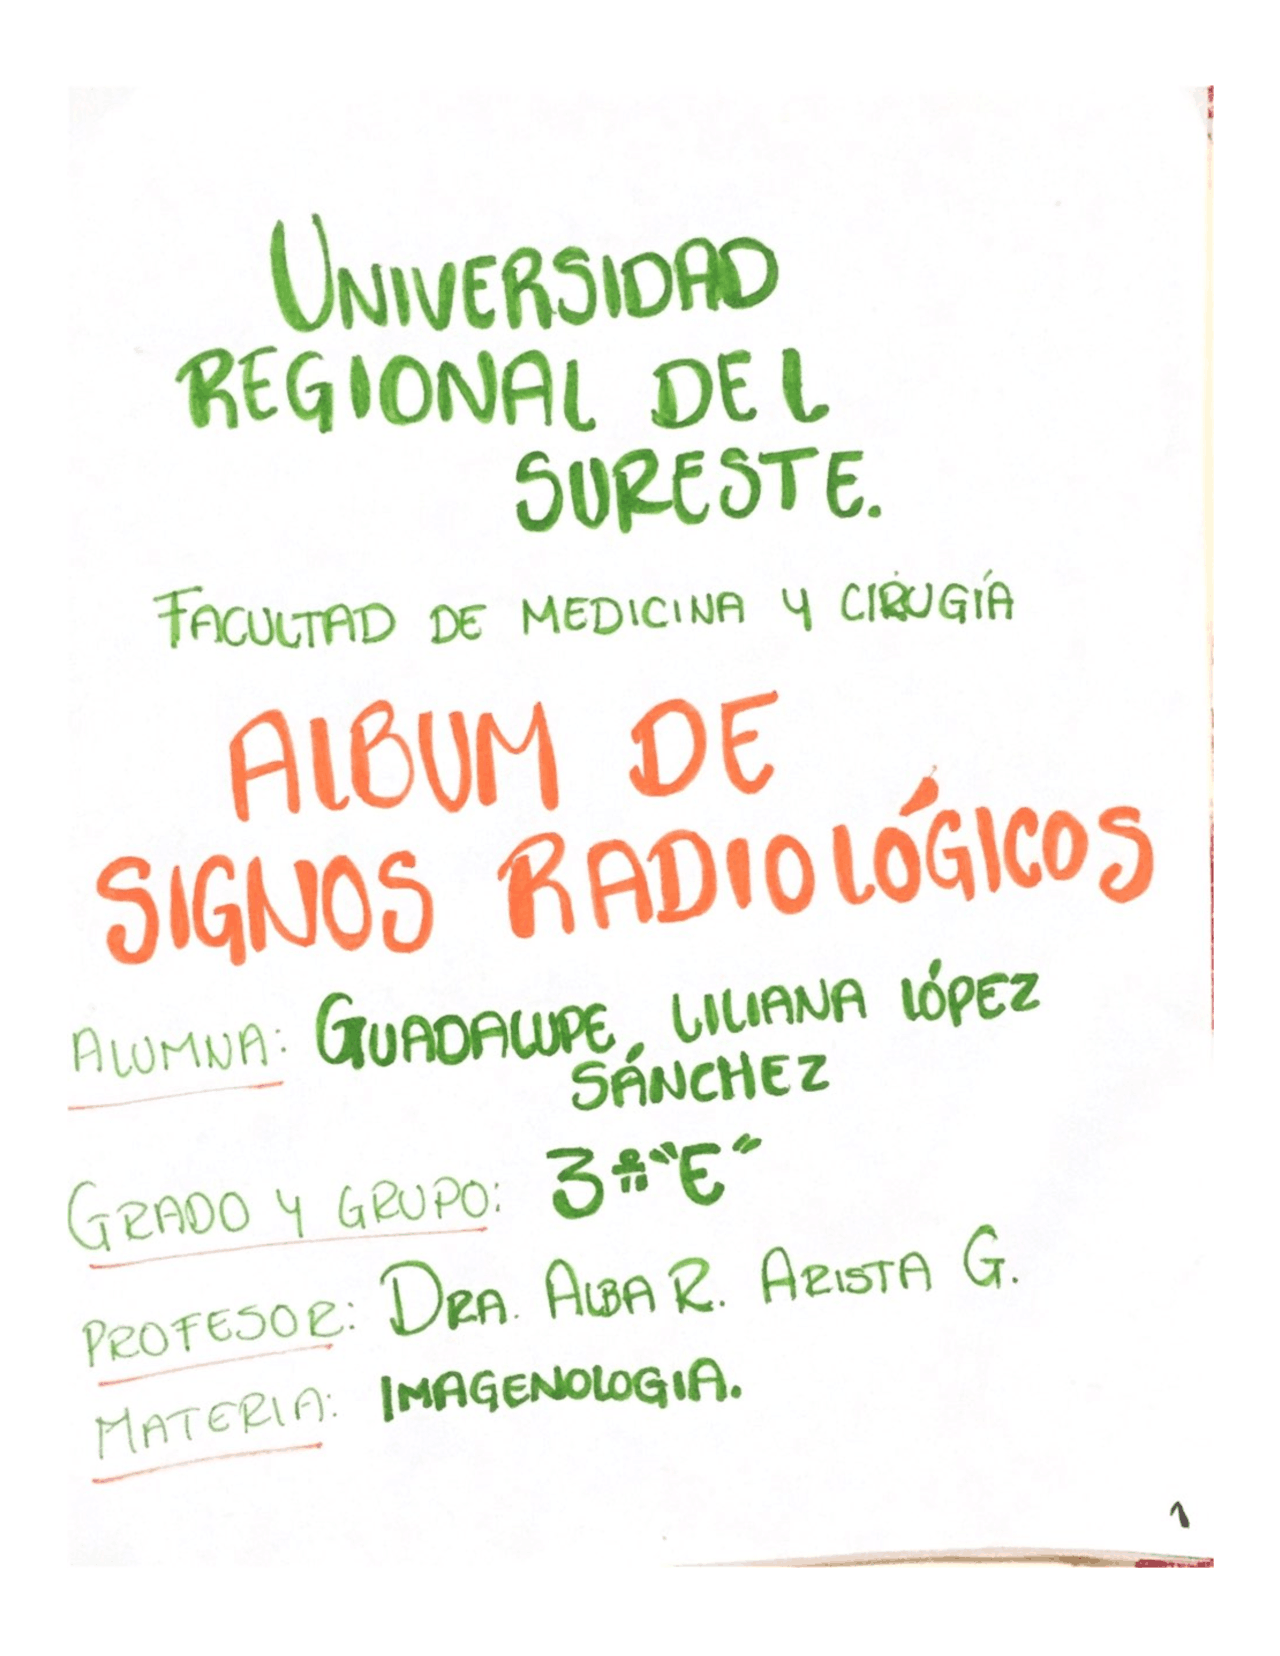 UNIVERSIDAD
REGIONAL DEL
SURESTE.
FACULTAD DE MEDICINA Y CIRUGÍA
ALBUM DE
SIGNOS RADIOLÓGICOS
ALUMNA: GUADALUPE LILIANA LÓPEZ
SÁNCHEZ
GRADO Y GRUPO: 3º "E"
PROFESOR: DRA. ALBA R. ARISTA G.
MATERIA: IMAGENOLOGIA.
1